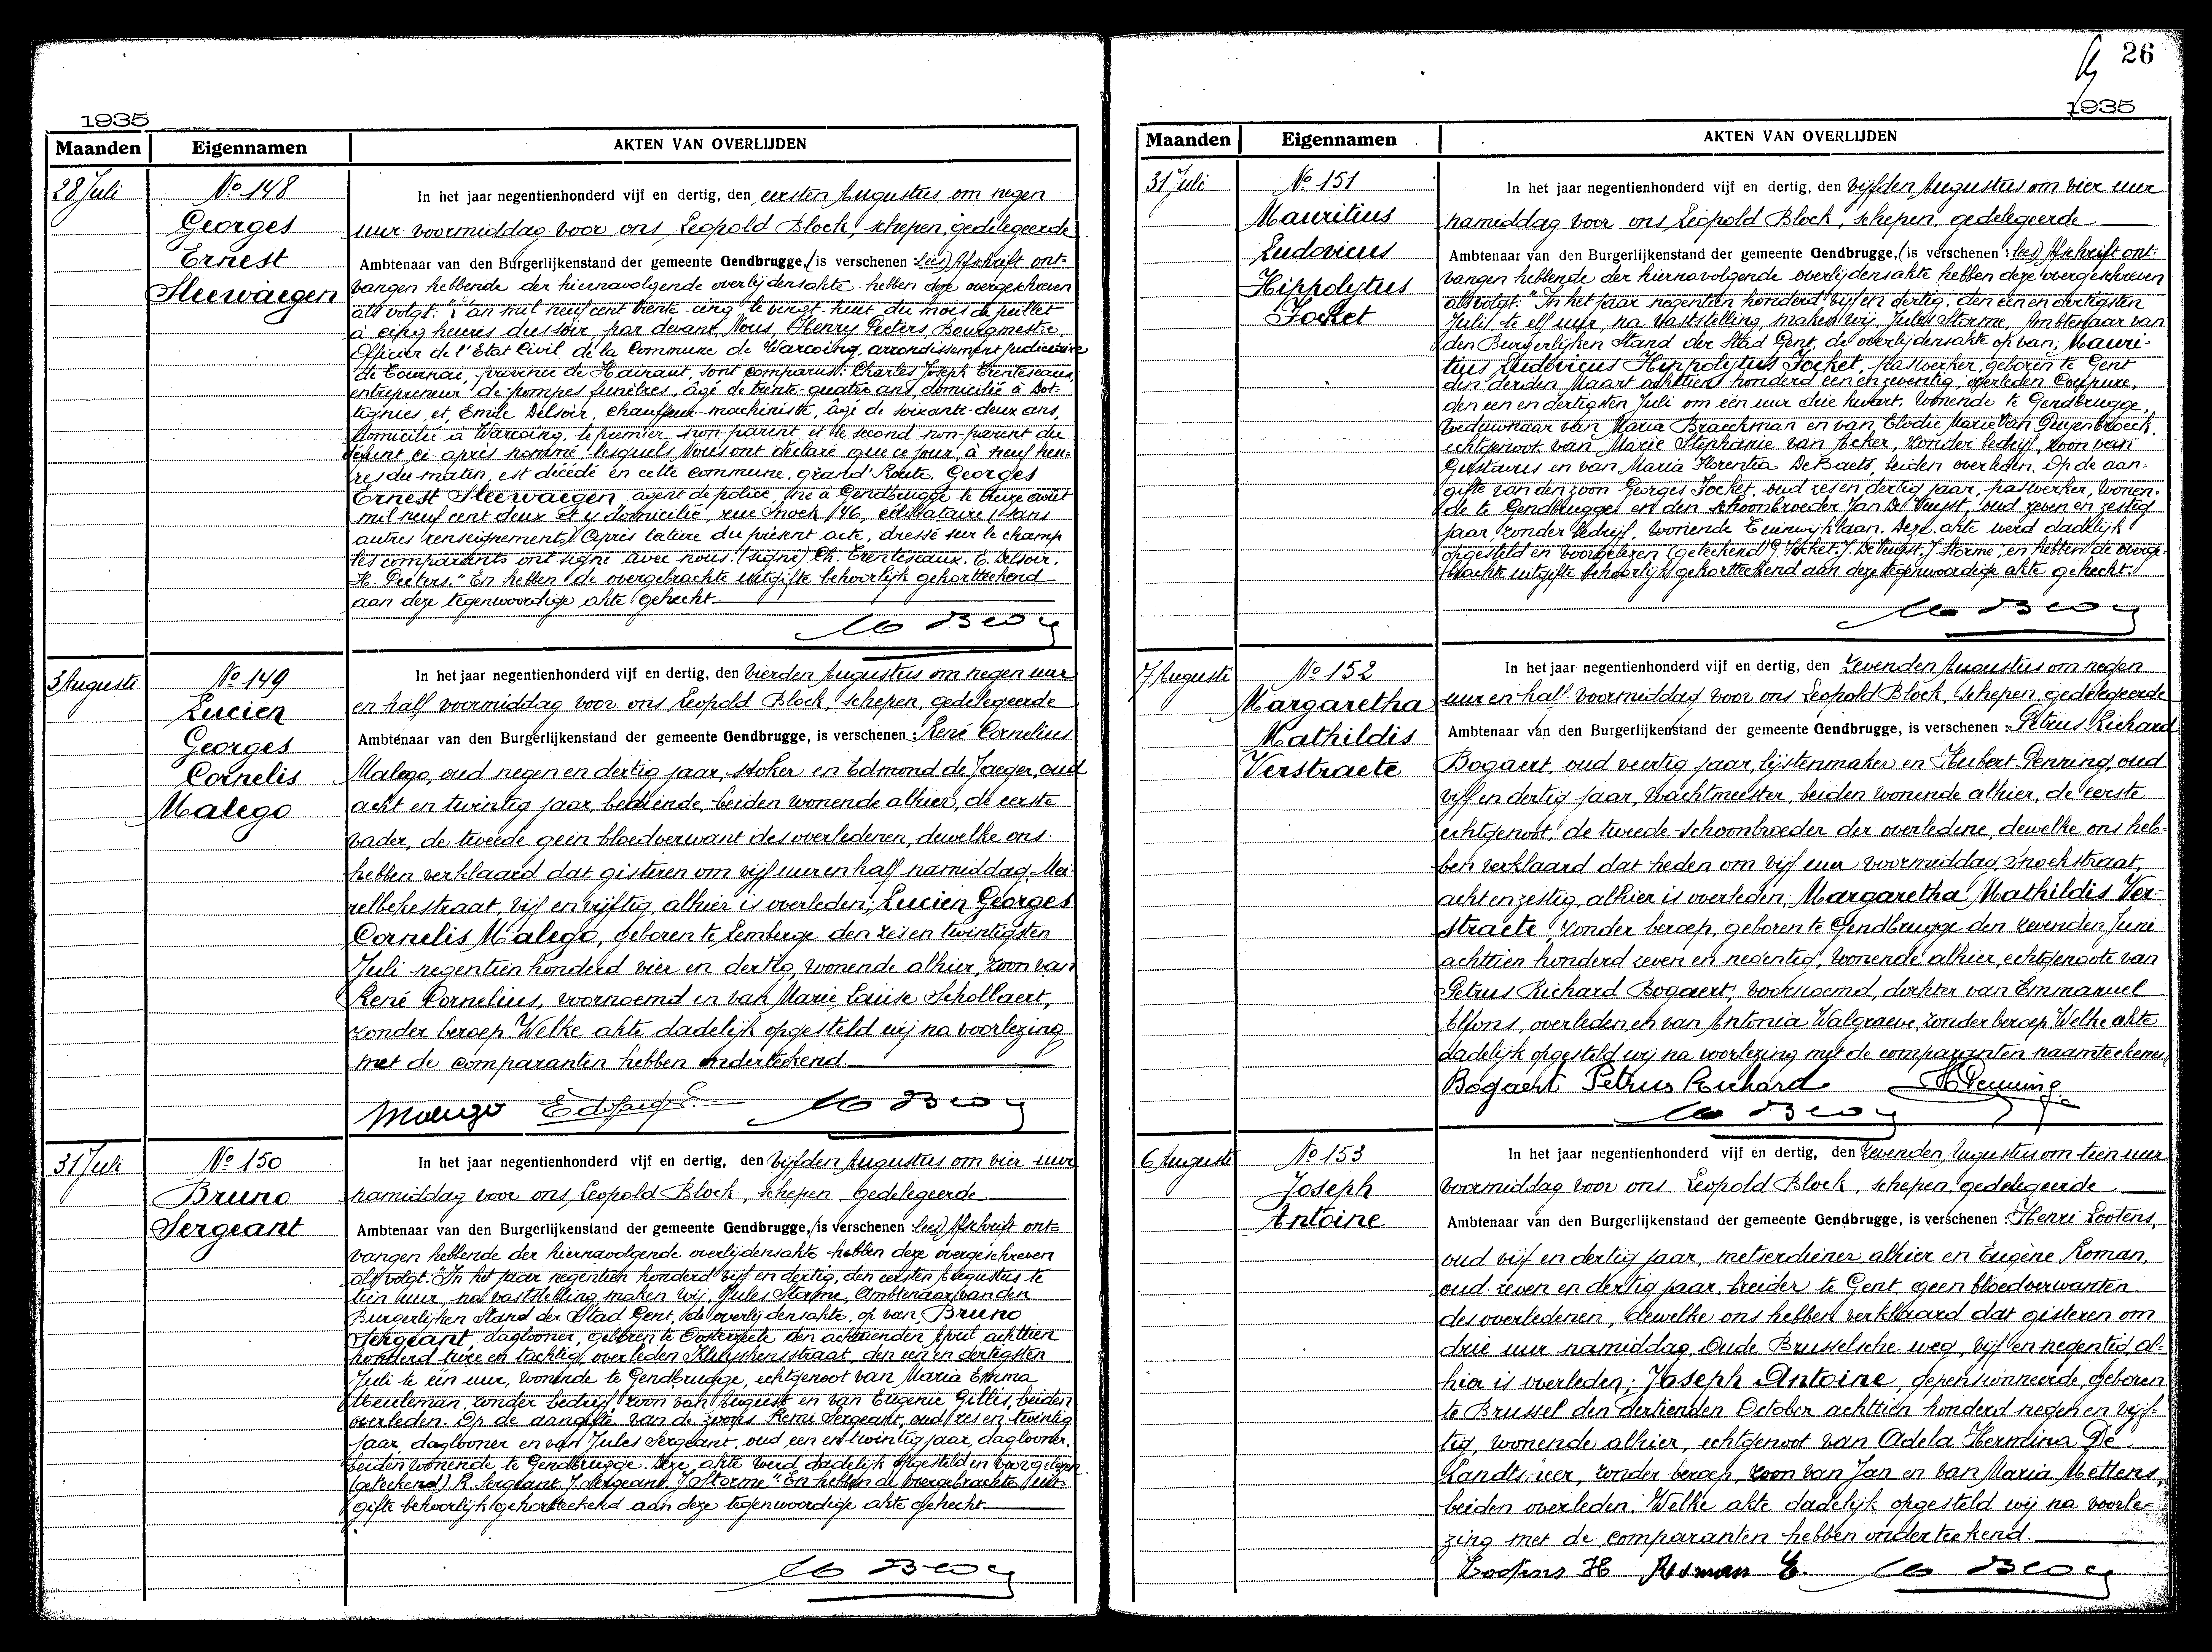 1935
Maanden Eigennamen AKTEN VAN OVERLIJDEN
28 Juli
No 148
Georges
Ernest
Sleewaegen
In het jaar negentienhonderd vijf en dertig, den eersten Augustus om negen
uur voormiddag voor ons, Leopold Block, schepen, gedelegeerde
Ambtenaar van den Burgerlijkenstand der gemeente Gendbrugge, (is verschenen : lees) Afschrift ont-
vangen hebbende der hiernavolgende overlijdensakte hebben deze overgeschreven
als volgt: "L'an mil neuf cent trente-cinq, le vingt-huit du mois de juillet
à cinq heures du soir, par devant Nous, Henry Peeters, Bourgmestre,
Officier de l'Etat Civil de la Commune de Warcoing, arrondissement judiciaire
de Tournai, province de Hainaut, sont comparus: Charles Joseph Trenteseaux,
entrepreneur de pompes funèbres, âgé de trente-quatre ans, domicilié à Dot-
tignies, et, Emile Delsoir, chauffeur-machiniste, âgé de soixante-deux ans,
domicilié à Warcoing, le premier non-parent et le second non-parent du
défunt ci-après nommé, lesquels Nous ont déclaré que ce jour, à neuf heu-
res du matin, est décédé en cette commune, grand'Route, Georges
Ernest Sleewaegen, agent de police, né à Gendbrugge le treize août
mil neuf cent deux et y domicilié, rue Snoek 146, célibataire (sans
autres renseignements) Après lecture du présent acte, dressé sur le champ
les comparants ont signé avec nous. (signé) Ch. Trenteseaux. E. Delsoir.
H. Peeters." En hebben de overgebrachte uitgifte behoorlijk gekortteekend
aan deze tegenwoordige akte gehecht
3 Auguste
No 149
Lucien
Georges
Cornelis
Malego
In het jaar negentienhonderd vijf en dertig, den vierden Augustus om negen uur
en half voormiddag voor ons Leopold Block, schepen, gedelegeerde
Ambtenaar van den Burgerlijkenstand der gemeente Gendbrugge, is verschenen : René Cornelius
Malego, oud negen en dertig jaar, stoker en Edmond de Jaeger, oud
acht en twintig jaar, bediende, beiden wonende alhier, de eerste
vader, de tweede geen bloedverwant des overledenen, dewelke ons
hebben verklaard dat gisteren om vijf uur en half namiddag, Mei-
relbekestraat, vijf en vijftig, alhier is overleden; Lucien Georges
Cornelis Malego, geboren te Lemberge den zes en twintigsten
Juli negentien honderd vier en dertig, wonende alhier, zoon van
René Cornelius, voornoemd en van Marie Louise Schollaert,
zonder beroep. Welke akte dadelijk opgesteld wij na voorlezing
met de comparanten hebben onderteekend.
Malego
31 Juli
No 150
Bruno
Sergeant
In het jaar negentienhonderd vijf en dertig, den vijfden Augustus om vier uur
namiddag voor ons, Leopold Block, schepen, gedelegeerde
Ambtenaar van den Burgerlijkenstand der gemeente Gendbrugge, (is verschenen : lees) Afschrift ont-
vangen hebbende der hiernavolgende overlijdensakte hebben deze overgeschreven
als volgt: "In het jaar negentien honderd vijf en dertig, den eersten Augustus te
tien uur, na vaststelling maken wij, Jules Storme, Ambtenaar van den
Burgerlijken Stand der Stad Gent, de overlijdensakte, op van, Bruno
Sergeant, daglooner, geboren te Oosterzele den achttienden April achttien
honderd twee en tachtig, overleden Kluyskensstraat, den een en dertigsten
Juli te een uur, wonende te Gendbrugge, echtgenoot van Maria Emma
Meuleman, zonder bedrijf, zoon van August en van Eugenie Gillis, beiden
overleden. Op de aangifte van de zoons Remi Sergeant, oud zes en twintig
jaar, daglooner en van Jules Sergeant, oud een en twintig jaar, daglooner,
beiden wonende te Gendbrugge. Deze akte werd dadelijk opgesteld en voorgelezen
(geteekend) R. Sergeant. J. Sergeant. J. Storme". En hebben de overgebrachte uit-
gifte behoorlijk gekortteekend aan deze tegenwoordige akte gehecht
26
1935
Maanden Eigennamen AKTEN VAN OVERLIJDEN
31 Juli
No 151
Mauritius
Ludovicus
Hippolytus
Focket
In het jaar negentienhonderd vijf en dertig, den vijfden Augustus om vier uur
namiddag voor ons, Leopold Block, schepen, gedelegeerde
Ambtenaar van den Burgerlijkenstand der gemeente Gendbrugge, (is verschenen : lees) Afschrift ont-
vangen hebbende der hiernavolgende overlijdensakte hebben deze overgeschreven
als volgt: "In het jaar negentien honderd vijf en dertig, den een en dertigsten
Juli te elf uur, na vaststelling, maken wij, Jules Storme, Ambtenaar van
den Burgerlijken Stand der Stad Gent, de overlijdensakte op van; Mauri-
tius Ludovicus Hippolytus Focket, paswerker, geboren te Gent
den derden Maart achttien honderd een en zeventig, overleden Coupure,
den een en dertigsten Juli om een uur drie kwart, wonende te Gendbrugge,
weduwnaar van Maria Braeckman en van Elodie Marie Van Puyenbroeck,
echtgenoot van Marie Stephanie van Acker, zonder bedrijf, zoon van
Gustavus en van Maria Florentia De Baets, beiden overleden. Op de aan-
gifte van den zoon Georges Focket, oud zes en dertig jaar, paswerker, wonen-
de te Gendbrugge en den schoonbroeder Jan De Vuyst, oud zeven en zestig
jaar, zonder bedrijf, wonende Ewinwijklaan. Deze akte werd dadelijk
opgesteld en voorgelezen (geteekend) G. Focket. J. De Vuyst. J. Storme", en hebben de overge-
brachte uitgifte behoorlijk gekortteekend aan deze tegenwoordige akte gehecht.
7 Auguste
No 152
Margaretha
Mathildis
Verstraete
In het jaar negentienhonderd vijf en dertig, den zevenden Augustus om negen
uur en half voormiddag voor ons Leopold Block, schepen, gedelegeerde
Ambtenaar van den Burgerlijkenstand der gemeente Gendbrugge, is verschenen : Petrus Richard
Bogaert, oud veertig jaar, lijstenmaker en Hubert Penning, oud
vijf en dertig jaar, wachtmeester, beiden wonende alhier, de eerste
echtgenoot, de tweede schoonbroeder der overledene, dewelke ons heb-
ben verklaard dat heden om vijf uur voormiddag, Snoekstraat,
acht en zestig, alhier is overleden; Margaretha Mathildis Ver-
straete, zonder beroep, geboren te Gendbrugge den zevenden Juni
achttien honderd zeven en negentig, wonende alhier, echtgenoote van
Petrus Richard Bogaert, voornoemd, dochter van Emmanuel
Alfons, overleden en van Antonia Walgraeve, zonder beroep. Welke akte
dadelijk opgesteld wij na voorlezing met de comparanten naamteekenen
Bogaert Petrus Richard H Penning
6 Auguste
No 153
Joseph
Antoine
In het jaar negentienhonderd vijf en dertig, den zevenden Augustus om tien uur
voormiddag voor ons Leopold Block, schepen, gedelegeerde
Ambtenaar van den Burgerlijkenstand der gemeente Gendbrugge, is verschenen : Henri Lootens,
oud vijf en dertig jaar, metserdiener alhier en Eugène Roman,
oud zeven en dertig jaar, breider te Gent, geen bloedverwanten
des overledenen, dewelke ons hebben verklaard dat gisteren om
drie uur namiddag, Oude Brusselsche weg, vijf en negentig, al-
hier is overleden; Joseph Antoine, gepensionneerde, geboren
te Brussel den dertienden October achttien honderd negen en vijf-
tig, wonende alhier, echtgenoot van Adela Hermina De
Landtsheer, zonder beroep, zoon van Jan en van Maria Mettens,
beiden overleden. Welke akte dadelijk opgesteld wij na voorle-
zing met de comparanten hebben onderteekend.
Lootens H Roman E.